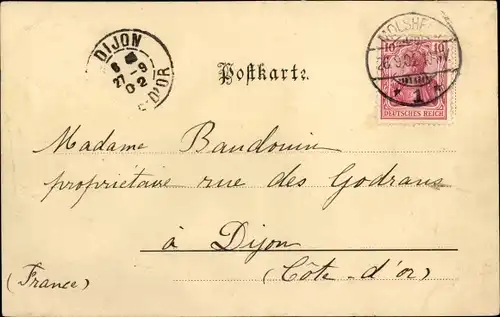 DIJON
8
27-9
02
D'OR
Postkarte.
MOLSHE
10 10
DEUTSCHES REICH
* 1 *
Madame Baudouin
propriétaire rue des Godrans
à Dijon
(Côte-d'or)
(France)